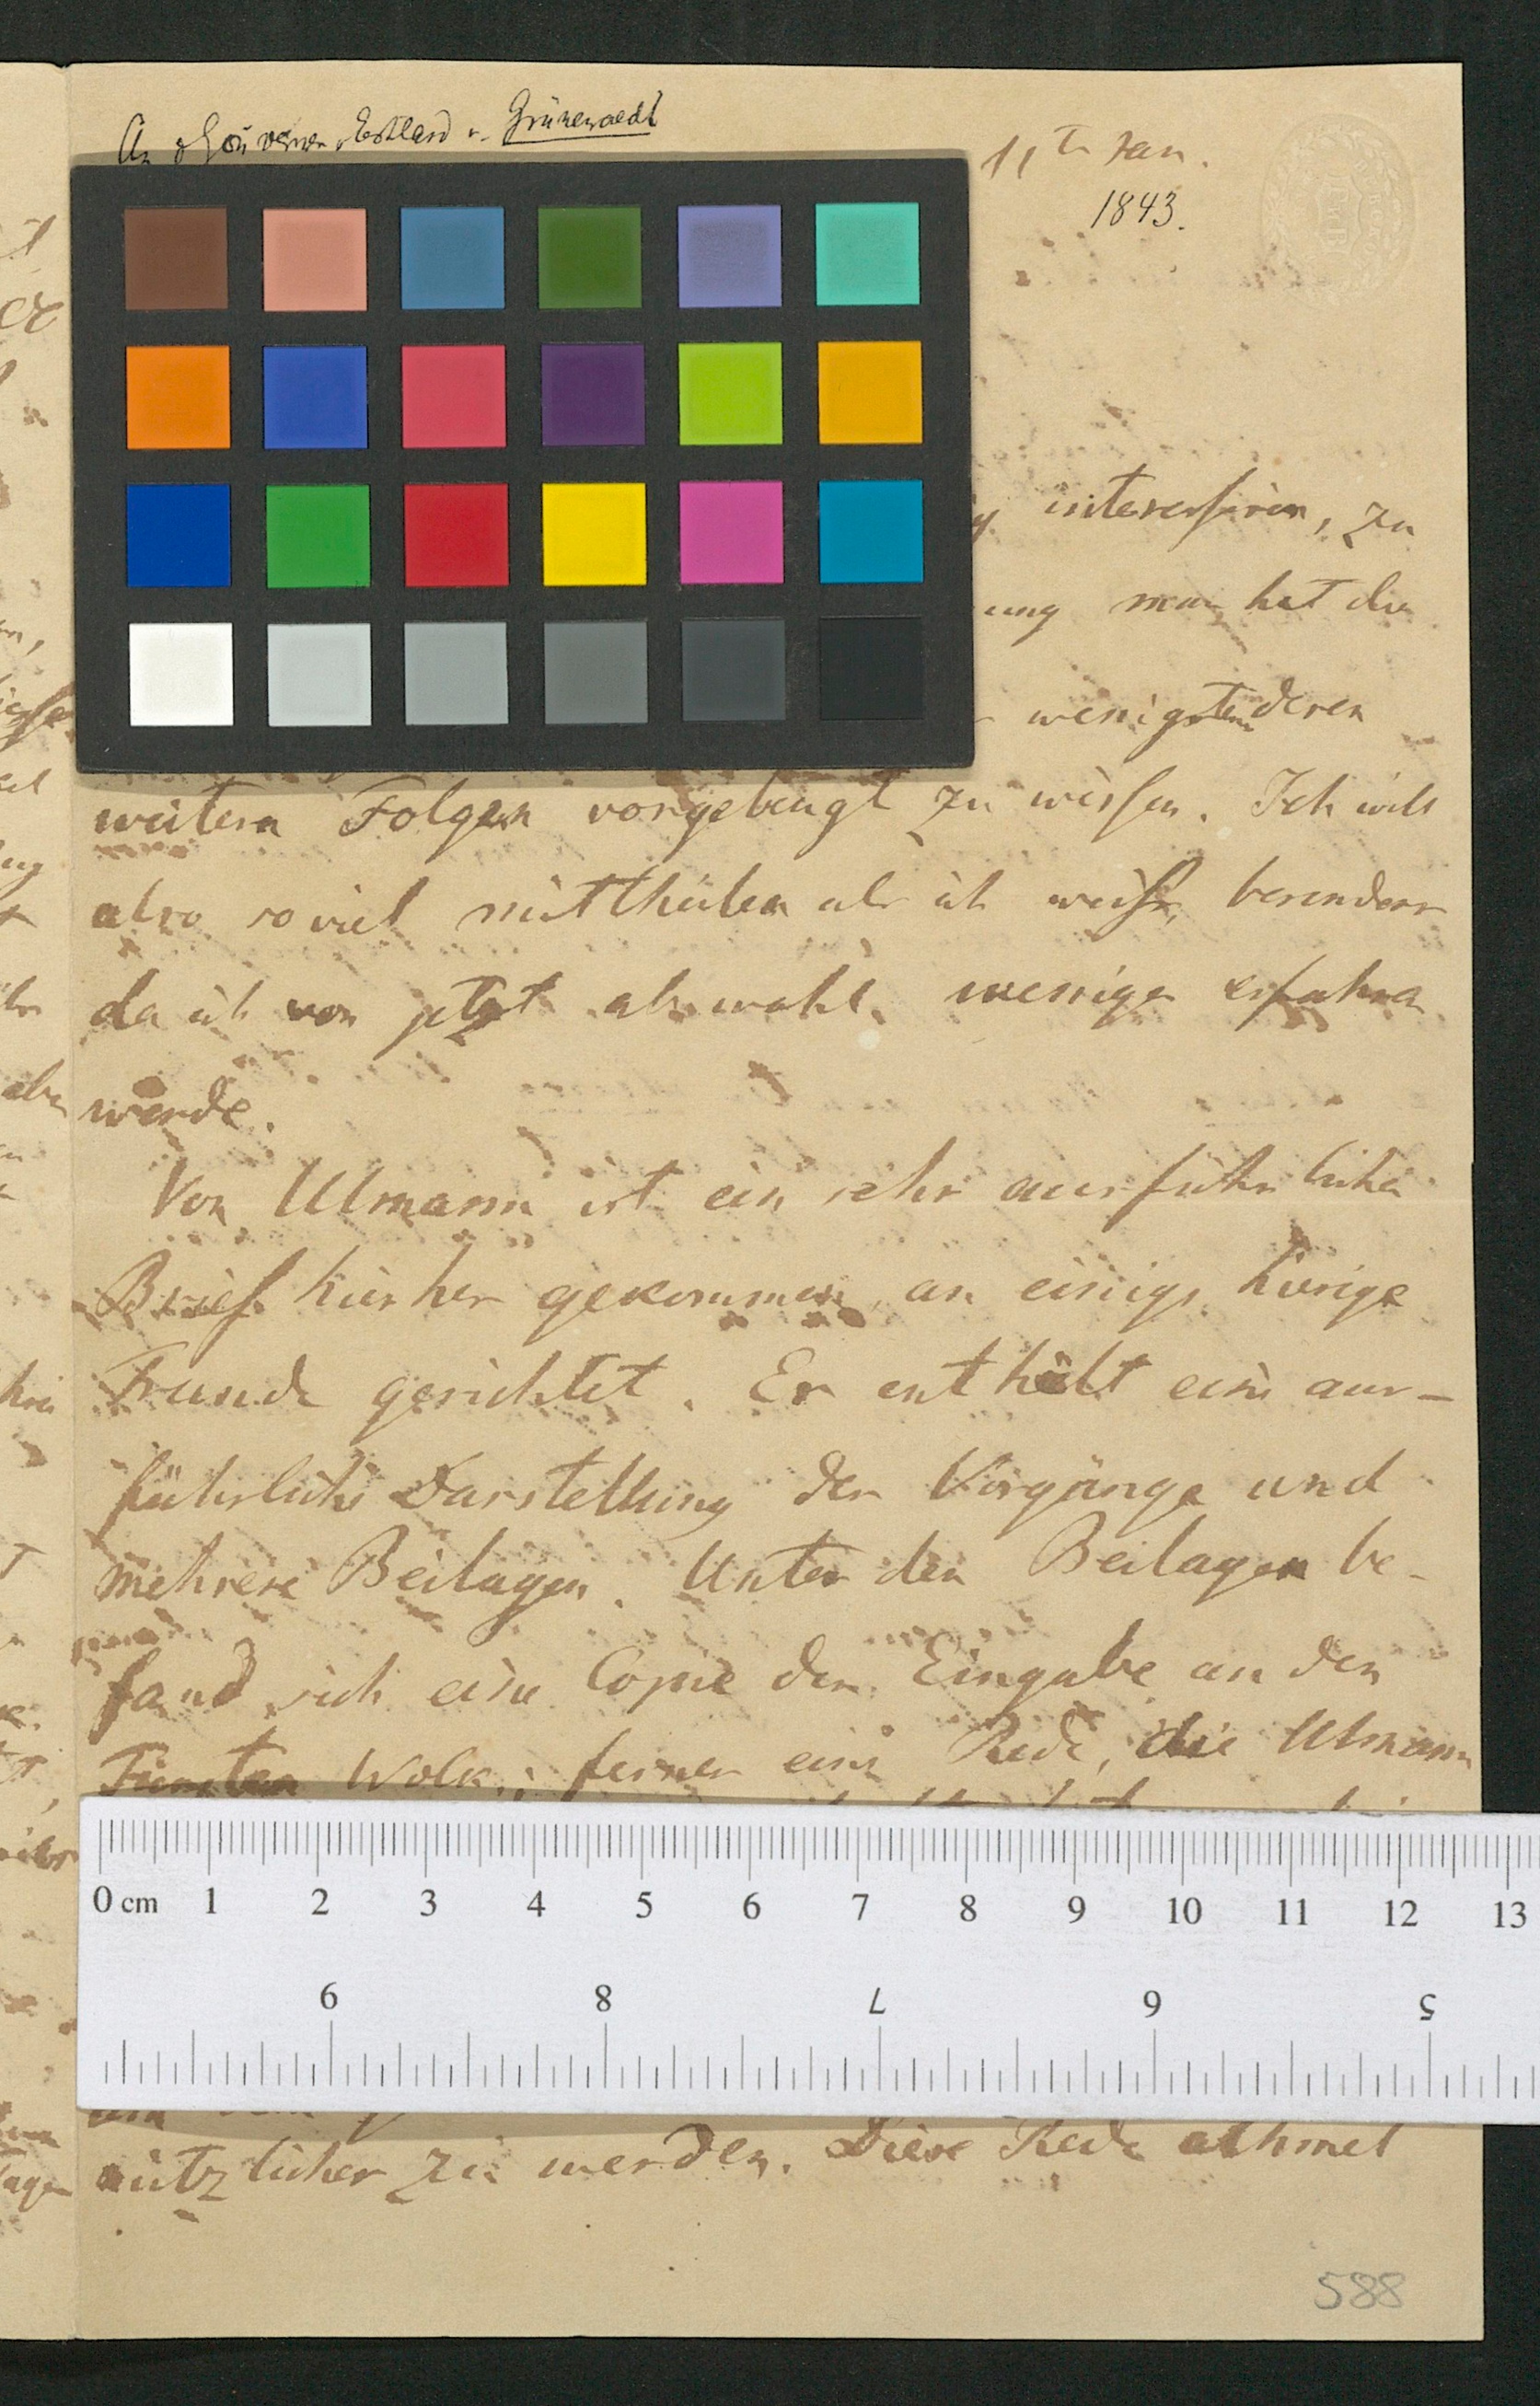 An d Gouverneur v. Estland v. Grünewaldt
11ten Jan.
1843.
interessiren, zu
ung man hat die
wenigstens deren
weitern Folgen vorgebeugt zu wissen. Ich will
also so viel mittheilen als ich weiß, besonders
da ich von jetzt ab wohl weniger erfahren
werde.
Von Ulmann ist ein sehr ausführlicher
Brief hierher gekommen, an einige hiesige
Freunde gerichtet. Er enthält eine aus-
führliche Darstellung der Vorgänge und
mehrere Beilagen. Unter den Beilagen be-
fand sich eine Copie der Eingabe an den
Fürsten Wolk.; ferner eine Rede, die Ulmann
0 cm 1 2 3 4 5 6 7 8 9 10 11 12 13
9 8 7 6 5
nützlicher zu werden. Diese Rede athmet
588